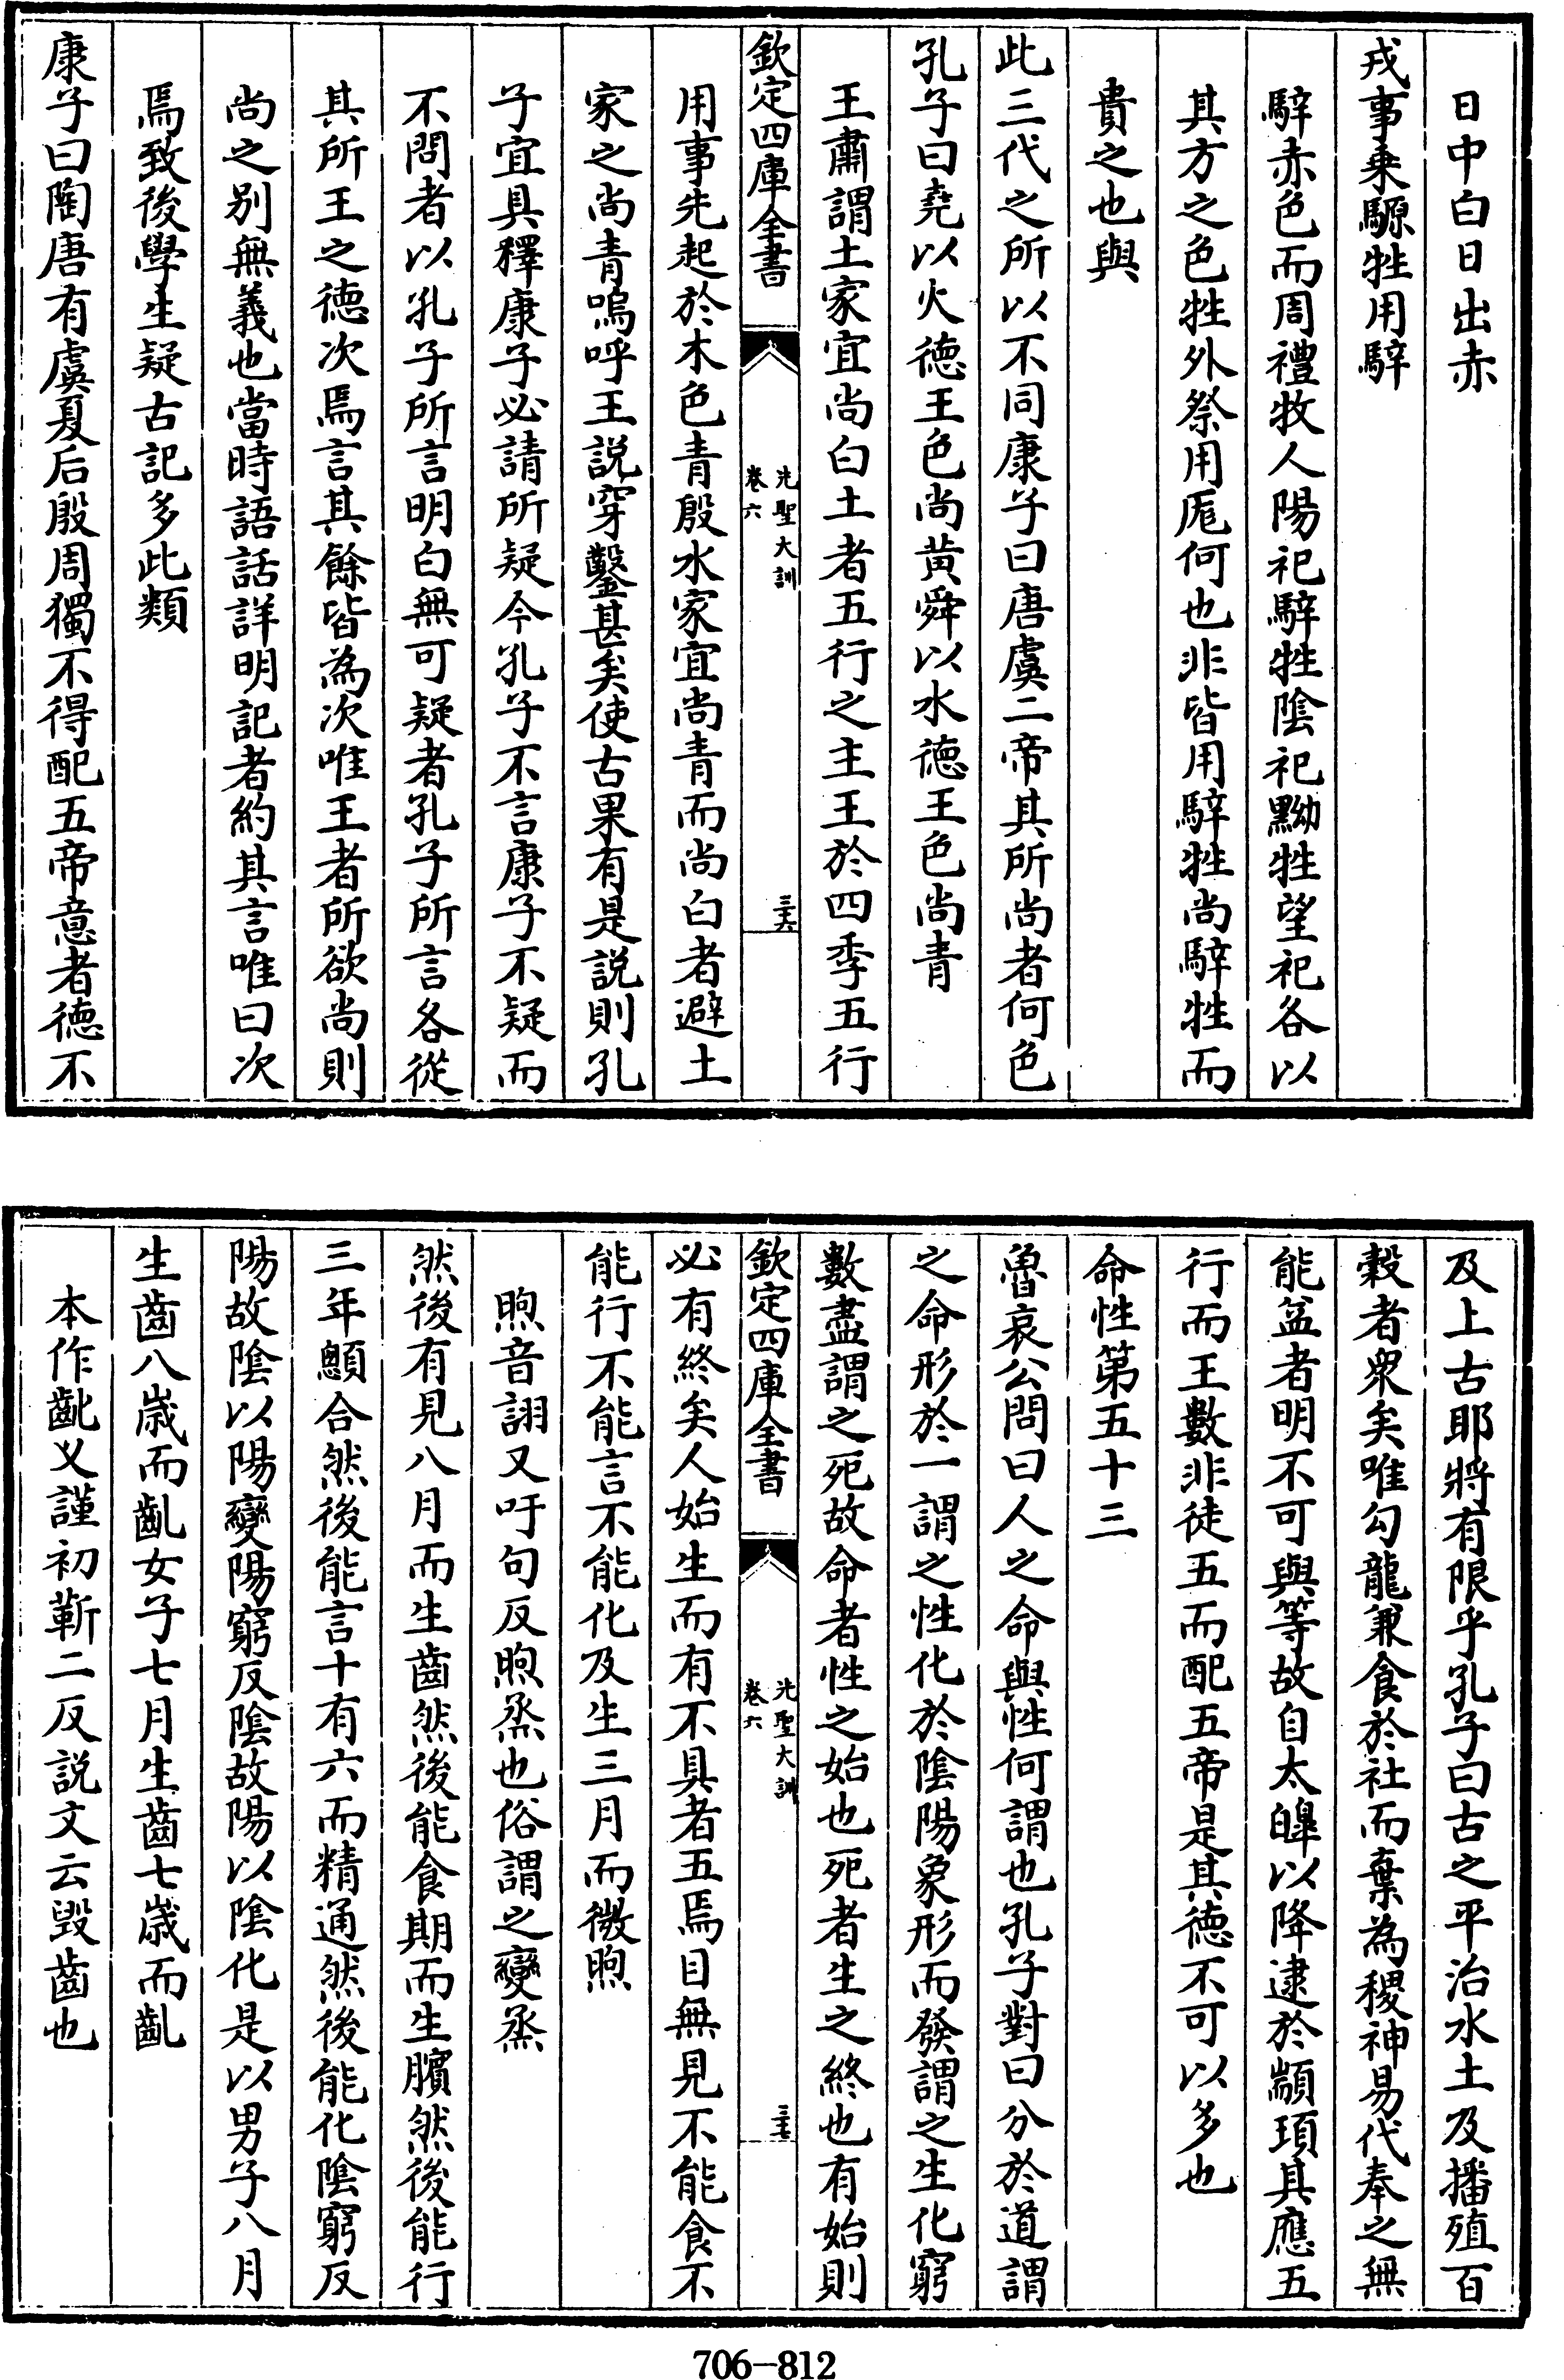 日中白日出赤
戎事乗騵牲用騂
騂赤色而周禮牧人陽祀騂牲陰祀黝牲望祀各以
其方之色牲外祭用厖何也非皆用騂牲尚騂牲而
貴之也與
此三代之所以不同康子曰唐虞二帝其所尚者何色
孔子曰堯以火徳王色尚黄舜以水徳王色尚青
王肅謂土家宜尚白土者五行之主王於四季五行
欽定四庫全書
先聖大訓
卷六
三六
用事先起於木色青殷水家宜尚青而尚白者避土
家之尚青嗚呼王説穿鑿甚矣使古果有是説則孔
子宜具釋康子必請所疑今孔子不言康子不疑而
不問者以孔子所言明白無可疑者孔子所言各從
其所王之徳次焉言其餘皆為次唯王者所欲尚則
尚之别無義也當時語話詳明記者約其言唯曰次
焉致後學生疑古記多此類
康子曰陶唐有虞夏后殷周獨不得配五帝意者徳不
及上古耶將有限乎孔子曰古之平治水土及播殖百
穀者衆矣唯勾龍兼食於社而棄為稷神易代奉之無
能益者明不可與等故自太皞以降逮於顓頊其應五
行而王數非徒五而配五帝是其徳不可以多也
命性第五十三
魯哀公問曰人之命與性何謂也孔子對曰分於道謂
之命形於一謂之性化於陰陽象形而發謂之生化窮
數盡謂之死故命者性之始也死者生之終也有始則
欽定四庫全書
先聖大訓
卷六
三七
必有終矣人始生而有不具者五焉目無見不能食不
能行不能言不能化及生三月而微煦
煦音詡又吁句反煦烝也俗謂之變烝
然後有見八月而生齒然後能食期而生臏然後能行
三年顖合然後能言十有六而精通然後能化陰窮反
陽故陰以陽變陽窮反陰故陽以陰化是以男子八月
生齒八歳而齓女子七月生齒七歳而齓
本作齔乂謹初靳二反説文云毀齒也
706-812